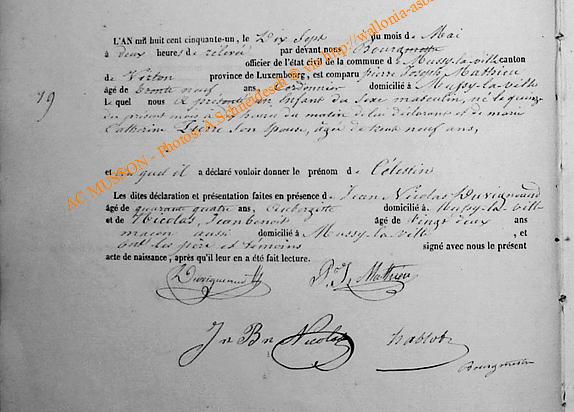 L'AN mil huit cent cinquante-un, le Dix Sept du mois de Mai
à deux heures de relevée par devant nous Bourgmestre
officier de l'état civil de la commune d Mussy-la-ville canton
de Virton province de Luxembourg, est comparu pierre Joseph Mathieu
19
âgé de trente neuf ans Cordonnier domicilié à Mussy-la-ville
Le quel nous a présenté un Enfant du Sexe masculin, né le quinze
du présent mois à heures du matin de lui déclarant et de marie
Catherine Pierre Son épouse, âgée de neuf ans,
et au quel il a déclaré vouloir donner le prénom de Célestin
Les dites déclaration et présentation faites en présence de Jean Nicolas Duvigneaud
âgé de quarante quatre ans, Aubergiste domicilié à Mussy-la-ville
et de Nicolas, Jean benoit âgé de vingt deux ans
maçon aussi domicilié à Mussy-la-ville , et
ont les père et témoins signé avec nous le présent
acte de naissance, après qu'il leur en a été fait lecture.
Duvigneaud P. J. Mathieu
Jn Bn Nicolas
Bourgmestre
AC MUSSON - Photos: A.Schneidesch @ via http://wallonia-aso